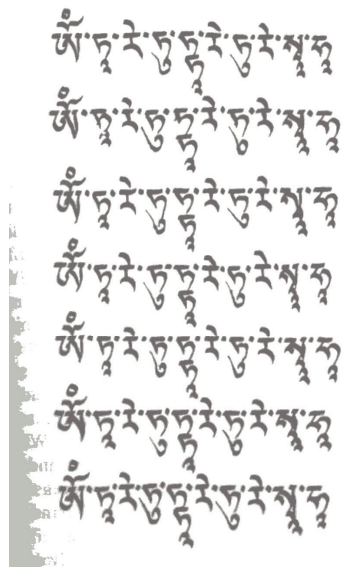 ཨོཾ་ཏཱ་རེ་ཏུ་ཏྟཱ་རེ་ཏུ་རེ་སྭཱ་ཧཱ
ཨོཾ་ཏཱ་རེ་ཏུ་ཏྟཱ་རེ་ཏུ་རེ་སྭཱ་ཧཱ
ཨོཾ་ཏཱ་རེ་ཏུ་ཏྟཱ་རེ་ཏུ་རེ་སྭཱ་ཧཱ
ཨོཾ་ཏཱ་རེ་ཏུ་ཏྟཱ་རེ་ཏུ་རེ་སྭཱ་ཧཱ
ཨོཾ་ཏཱ་རེ་ཏུ་ཏྟཱ་རེ་ཏུ་རེ་སྭཱ་ཧཱ
ཨོཾ་ཏཱ་རེ་ཏུ་ཏྟཱ་རེ་ཏུ་རེ་སྭཱ་ཧཱ
ཨོཾ་ཏཱ་རེ་ཏུ་ཏྟཱ་རེ་ཏུ་རེ་སྭཱ་ཧཱ